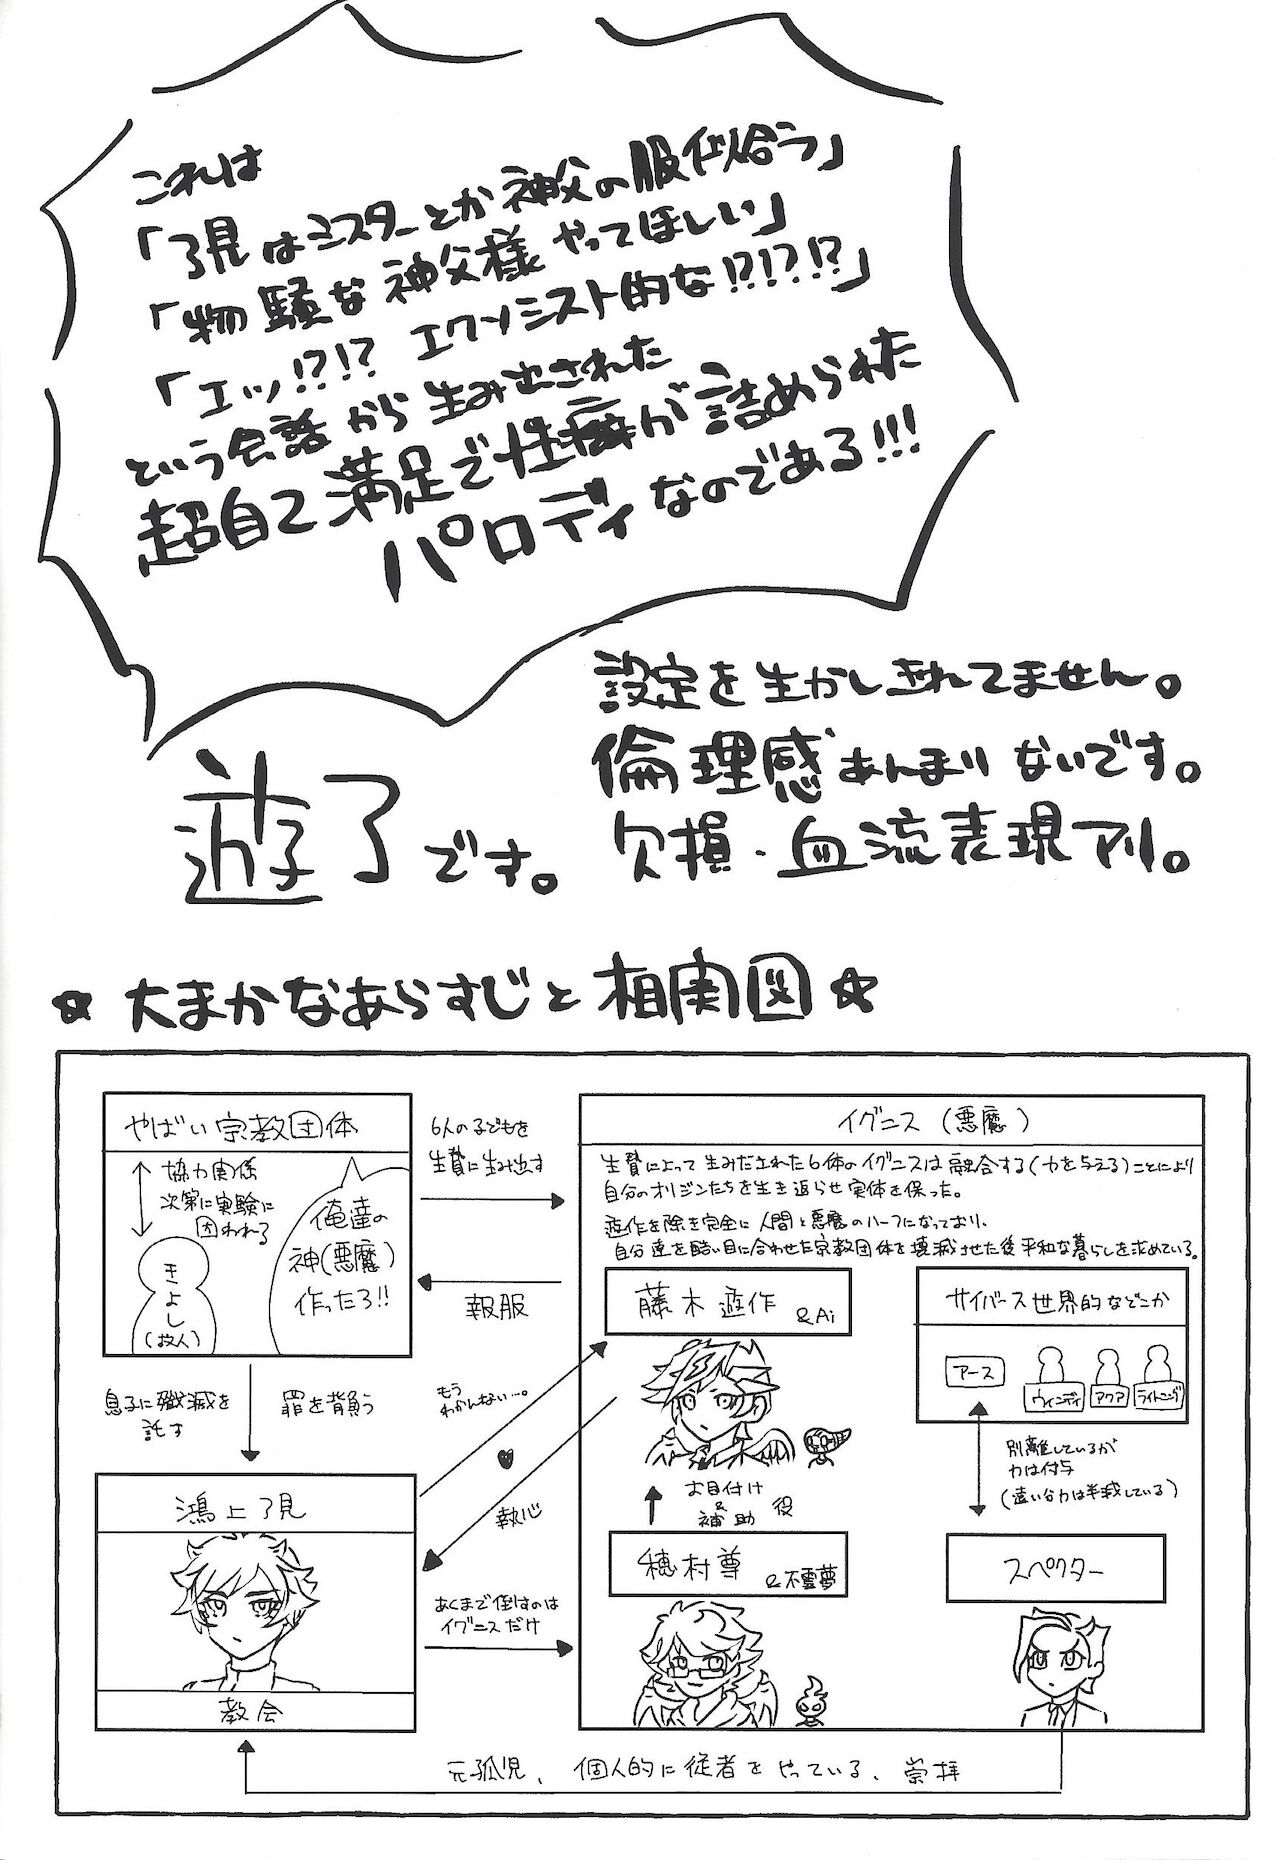 これは
「了見はミスターとか神父の服似合う」
「物騒な神父様やってほしい」
「エッ!?!? エクソシスト的な!?!?!?」
という会話から生み出された
超自己満足で性癖が詰められた
パロディなのである!!!
設定を生かしきれてません。
倫理感あんまりないです。
欠損・血流表現アリ。
遊了です。
☆大まかなあらすじと相関図☆
やばい宗教団体
協力関係
次第に実験に
囚われる
きよし
(故人)
俺達の
神(悪魔)
作ったろ!!
6人の子どもを
生贄に生み出す
報服
息子に殲滅を
託す
罪を背負う
鴻上了見
教会
もう
わかんない…。
執心
あくまで倒すのは
イグニスだけ
イグニス (悪魔)
生贄によって生みだされた6体のイグニスは融合する(力を与える)ことにより
自分のオリジンたちを生き返らせ実体を保った。
遊作を除き完全に人間と悪魔のハーフになっており、
自分達を酷い目に合わせた宗教団体を壊滅させた後平和な暮らしを求めている。
藤木遊作
&Ai
お目付け
&
補助
役
穂村尊
&不霊夢
サイバース世界的などこか
アース
ウィンディ
アクア
ライトニング
別離しているが
力は付与
(遠い分力は半減している)
スペクター
元孤児、個人的に従者をやっている、崇拝